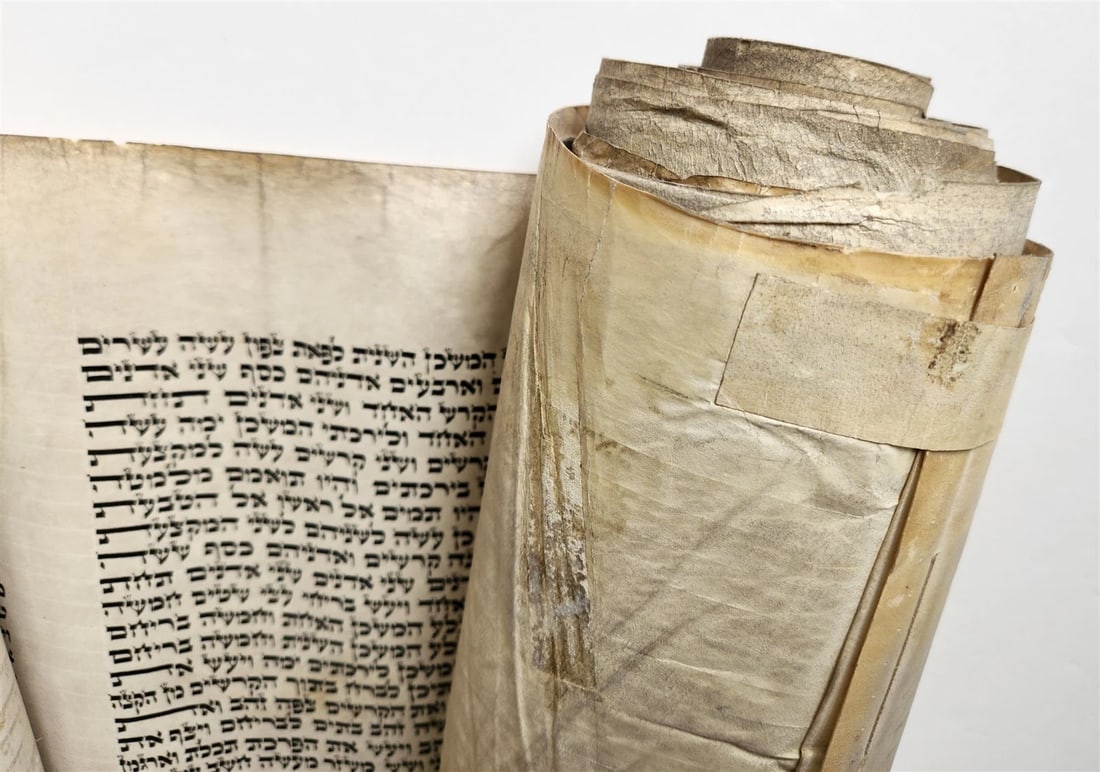 המשכן השנית לפאת צפון עשה עשרים
וארבעים אדניהם כסף שני אדנים
הקרש האחד ושני אדנים תחת
האחד ולירכתי המשכן ימה עשה
קרשים ושני קרשים עשה למקצעת
בירכתים והיו תואמם מלמטה
תמים אל ראשו אל הטבעת
כן עשה לשניהם לשני המקצעת
קרשים ואדניהם כסף ששה
שני אדנים תחת
האחד ויעש בריחי עצי שטים חמשה
המשכן האחת וחמשה בריחם
המשכן השנית וחמשה בריחם
המשכן לירכתים ימה ויעש את
התיכן לברח בתוך הקרשים מן הקצה
ואת הקרשים צפה זהב ואת
זהב בתים לבריחם ויצף את
ויעש את הפרכת תכלת וארגמן
משזר מעשה חשב